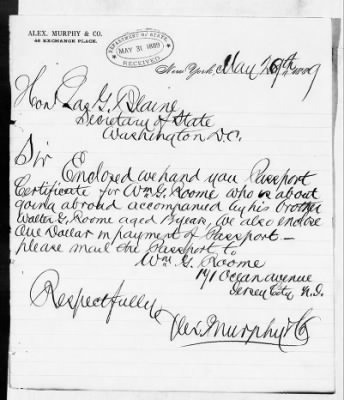 ALEX. MURPHY & CO.
46 EXCHANGE PLACE.
DEPARTMENT OF STATE,
MAY 31 1889
RECEIVED
New York May 29th 1889
Hon Jas G. Blaine
Secretary of State
Washington D.C.
Sir Enclosed we hand you Passport
Certificate for Wm G. Roome who is about
going abroad accompanied by his brother
Walter G. Roome aged years, we also enclose
One Dollar in payment of Passport—
please mail the Passport to
Wm G. Roome
191 Ocean avenue
Jersey City N.J.
Respectfully
Alex. Murphy & Co